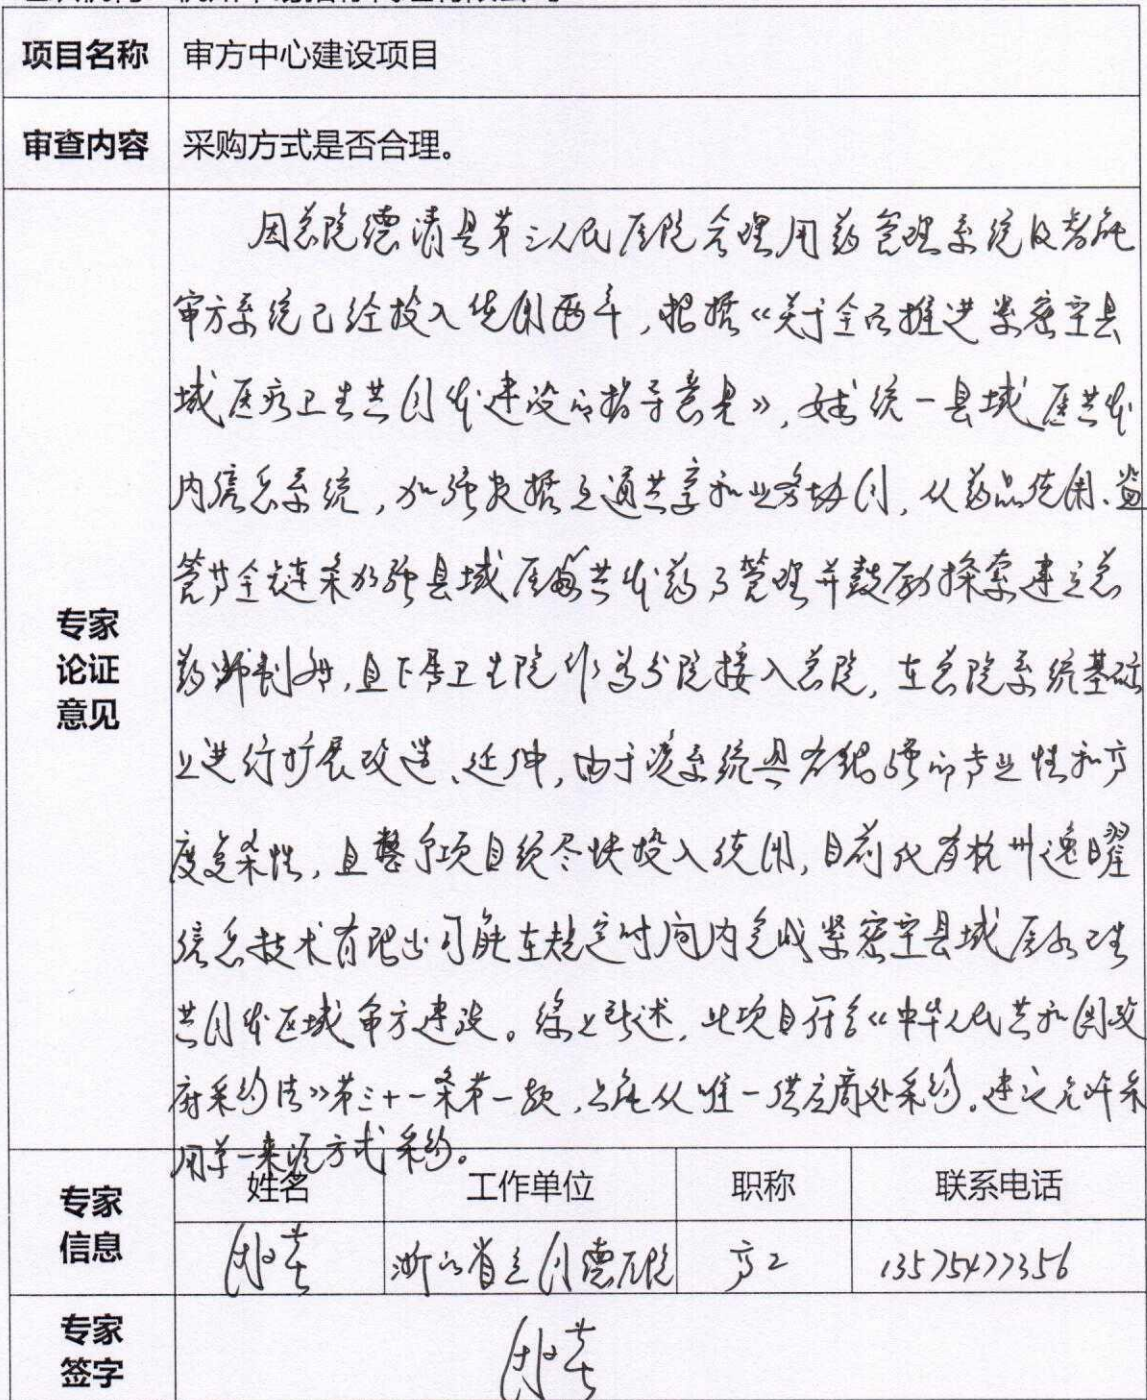 项目名称 审方中心建设项目
审查内容 采购方式是否合理。
专家论证意见
因总院德清县第三人民医院合理用药管理系统及智能
审方系统已经投入使用两年,根据《关于全面推进紧密型县
域医疗卫生共同体建设的指导意见》,统一县域医共体
内信息系统,加强数据互通共享和业务协同,从药品使用、监
管等全链条加强县域医共体药事管理并鼓励探索建立总
药师制度,且下属卫生院作为分院接入总院,在总院系统基础
上进行扩展改造、延伸,由于该系统具有很强的专业性和高
度复杂性,且整个项目须尽快投入使用,目前仅有杭州逸曜
信息技术有限公司能在规定时间内完成紧密型县域医疗卫生
共同体区域审方建设。综上所述,此项目符合《中华人民共和国政
府采购法》第三十一条第一款,只能从唯一供应商处采购。建议允许采
用单一来源方式采购。
专家信息 姓名 工作单位 职称 联系电话
浙江省立同德医院 高工 13575477356
专家签字